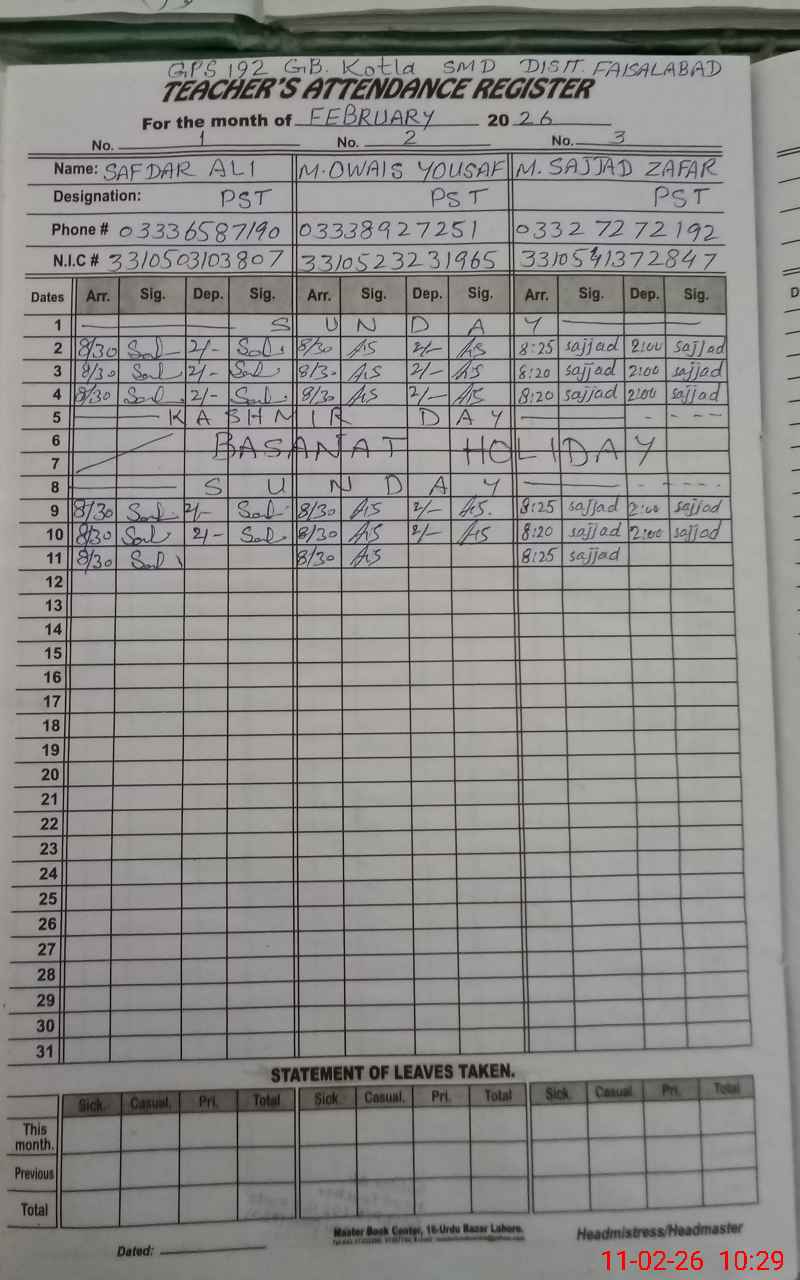 GPS 192 G.B. Kotla SMD DISTT. FAISALABAD
TEACHER'S ATTENDANCE REGISTER
For the month of FEBRUARY 20 26
No. 1 No. 2 No. 3
Name: SAFDAR ALI M.OWAIS YOUSAF M. SAJJAD ZAFAR
Designation: PST PST PST
Phone # 03336587190 03338927251 0332 7272192
N.I.C # 3310503103807 3310523231965 3310541372847
Dates Arr. Sig. Dep. Sig. Arr. Sig. Dep. Sig. Arr. Sig. Dep. Sig.
1 SUNDAY
2 8/30 2/- 8/30 AS 2/- AS 8:25 sajjad 2:00 sajjad
3 8/30 2/- 8/30 AS 2/- AS 8:20 sajjad 2:00 sajjad
4 8/30 2/- 8/30 AS 2/- AS 8:20 sajjad 2:00 sajjad
5 KASHMIR DAY
6 BASANAT HOLIDAY
7
8 SUNDAY
9 8/30 2/- 8/30 AS 2/- AS. 8:25 sajjad 2:00 sajjad
10 8/30 2/- 8/30 AS 2/- AS 8:20 sajjad 2:00 sajjad
11 8/30 8/30 AS 8:25 sajjad
12
13
14
15
16
17
18
19
20
21
22
23
24
25
26
27
28
29
30
31
STATEMENT OF LEAVES TAKEN.
Sick. Casual. Pri. Total Sick. Casual. Pri. Total Sick. Casual. Pri. Total
This month.
Previous
Total
Master Book Center, 16-Urdu Bazar Lahore.
Dated: Headmistress/Headmaster
11-02-26 10:29